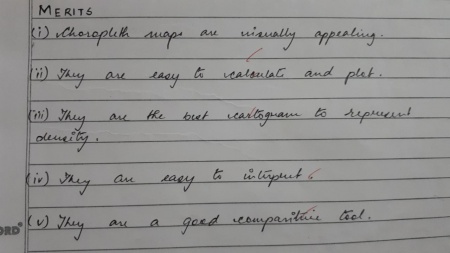 MERITS
(i) Choropleth maps are visually appealing.
(ii) They are easy to calculate and plot.
(iii) They are the best cartogram to represent
density.
(iv) They are easy to interpret.
(v) They are a good comparitive tool.
ORD